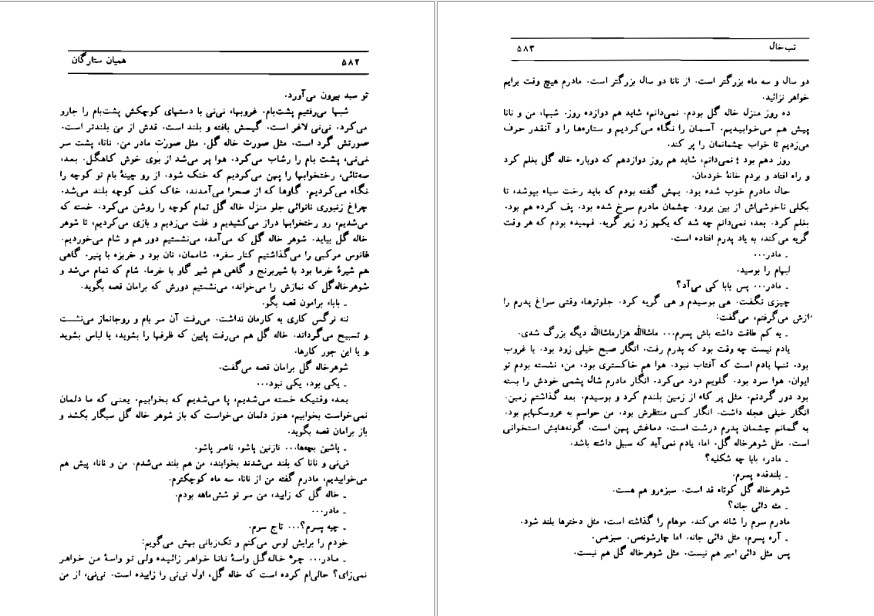 همیان ستارگان ۵۸۲
تو سبد بیرون می‌آورد.
شبها می‌رفتیم پشت‌بام. غروبها، نی‌نی با دستهای کوچکش پشت‌بام را جارو
می‌کرد. نی‌نی لاغر است. گیسش بافته و بلند است. قدش از من بلندتر است.
صورتش گرد است. مثل صورت خاله گل. مثل صورت مادر من. نانا، پشت سر
نی‌نی، پشت بام را رشاب می‌کرد. هوا پر می‌شد از بوی خوش کاهگل. بعد،
سه‌تائی، رختخوابها را پهن می‌کردیم که خنک شود. از رو چینهٔ بام تو کوچه را
نگاه می‌کردیم. گاوها که از صحرا می‌آمدند، خاک کف کوچه بلند می‌شد.
چراغ زنبوری نانوائی جلو منزل خاله گل تمام کوچه را روشن می‌کرد. خسته که
می‌شدیم، رو رختخوابها دراز می‌کشیدیم و غلت می‌زدیم و بازی می‌کردیم، تا شوهر
خاله گل بیاید. شوهر خاله گل که می‌آمد، می‌نشستیم دور هم و شام می‌خوردیم.
فانوس مرکبی را می‌گذاشتیم کنار سفره. شاممان، نان بود و خربزه با پنیر. گاهی
هم شیرهٔ خرما بود با شیربرنج و گاهی هم شیر گاو با خرما. شام که تمام می‌شد و
شوهرخاله‌گل که نمازش را می‌خواند، می‌نشستیم دورش که برامان قصه بگوید.
ـ بابا، برامون قصه بگو.
ننه نرگس کاری به کارمان نداشت. می‌رفت آن سر بام و روجانماز می‌نشست
و تسبیح می‌گرداند. خاله گل هم می‌رفت پایین که ظرفها را بشوید، یا لباس بشوید
و یا این جور کارها.
شوهرخاله گل برامان قصه می‌گفت.
ـ یکی بود، یکی نبود...
بعد، وقتیکه خسته می‌شدیم، پا می‌شدیم که بخوابیم. یعنی که ما دلمان
نمی‌خواست بخوابیم، هنوز دلمان می‌خواست که باز شوهر خاله گل سیگار بکشد و
باز برامان قصه بگوید.
ـ پاشین بچه‌ها... نازنین پاشو، ناصر پاشو.
نی‌نی و نانا که بلند می‌شدند بخوابند، من هم بلند می‌شدم. من و نانا، پیش هم
می‌خوابیدیم. مادرم گفته من از نانا، سه ماه کوچکترم.
ـ خاله گل که زایید، من سر تو شش‌ماهه بودم.
ـ مادر...
ـ چیه پسرم؟... تاج سرم.
خودم را برایش لوس می‌کنم و تک‌زبانی بهش می‌گویم:
ـ مادر... چرا خاله‌گل واسهٔ نانا خواهر زائیده ولی تو واسهٔ من خواهر
نمی‌زای؟ حالی‌ام کرده است که خاله گل، اول نی‌نی را زاییده است. نی‌نی، از من
تب‌خال ۵۸۳
دو سال و سه ماه بزرگتر است. از نانا دو سال بزرگتر است. مادرم هیچ وقت برایم
خواهر نزائید.
ده روز منزل خاله گل بودم. نمی‌دانم، شاید هم دوازده روز. شبها، من و نانا
پیش هم می‌خوابیدیم. آسمان را نگاه می‌کردیم و ستاره‌ها را و آنقدر حرف
می‌زدیم تا خواب چشمانمان را پر کند.
روز دهم بود ؛ نمی‌دانم، شاید هم روز دوازدهم که دوباره خاله گل بغلم کرد
و راه افتاد و بردم خانهٔ خودمان.
حال مادرم خوب شده بود. بهش گفته بودم که باید رخت سیاه بپوشد، تا
بکلی ناخوشی‌اش از بین برود. چشمان مادرم سرخ شده بود. پف کرده هم بود.
بغلم کرد. بعد، نمی‌دانم چه شد که یکهو زد زیر گریه. فهمیده بودم که هر وقت
گریه می‌کند، به یاد پدرم افتاده است.
ـ مادر...
لبهام را بوسید.
ـ مادر... پس بابا کی می‌آد؟
چیزی نگفت. هی بوسیدم و هی گریه کرد. جلوترها، وقتی سراغ پدرم را
ازش می‌گرفتم، می‌گفت:
ـ یه کم طاقت داشته باش پسرم... ماشاالله هزارماشاالله دیگه بزرگ شدی.
یادم نیست چه وقت بود که پدرم رفت. انگار صبح خیلی زود بود. یا غروب
بود. تنها یادم است که آفتاب نبود. هوا هم خاکستری بود. من، نشسته بودم تو
ایوان. هوا سرد بود. گلویم درد می‌کرد. انگار مادرم شال پشمی خودش را بسته
بود دور گردنم. مثل پر کاه از زمین بلندم کرد و بوسیدم. بعد گذاشتم زمین.
انگار خیلی عجله داشت. انگار کسی منتظرش بود. من حواسم به عروسکهایم بود.
به گمانم چشمان پدرم درشت است. دماغش پهن است. گونه‌هایش استخوانی
است. مثل شوهرخاله گل. اما، یادم نمی‌آید که سبیل داشته باشد.
ـ مادر، بابا چه شکلیه؟
ـ بلندقده پسرم.
شوهرخاله گل کوتاه قد است. سبزه‌رو هم هست.
ـ مثه دائی جانه؟
مادرم سرم را شانه می‌کند. موهام را گذاشته است، مثل دخترها بلند شود.
ـ آره پسرم، مثل دائی جانه. اما چارشونه‌س. سبزه‌س.
پس مثل دائی امیر هم نیست. مثل شوهرخاله گل هم نیست.